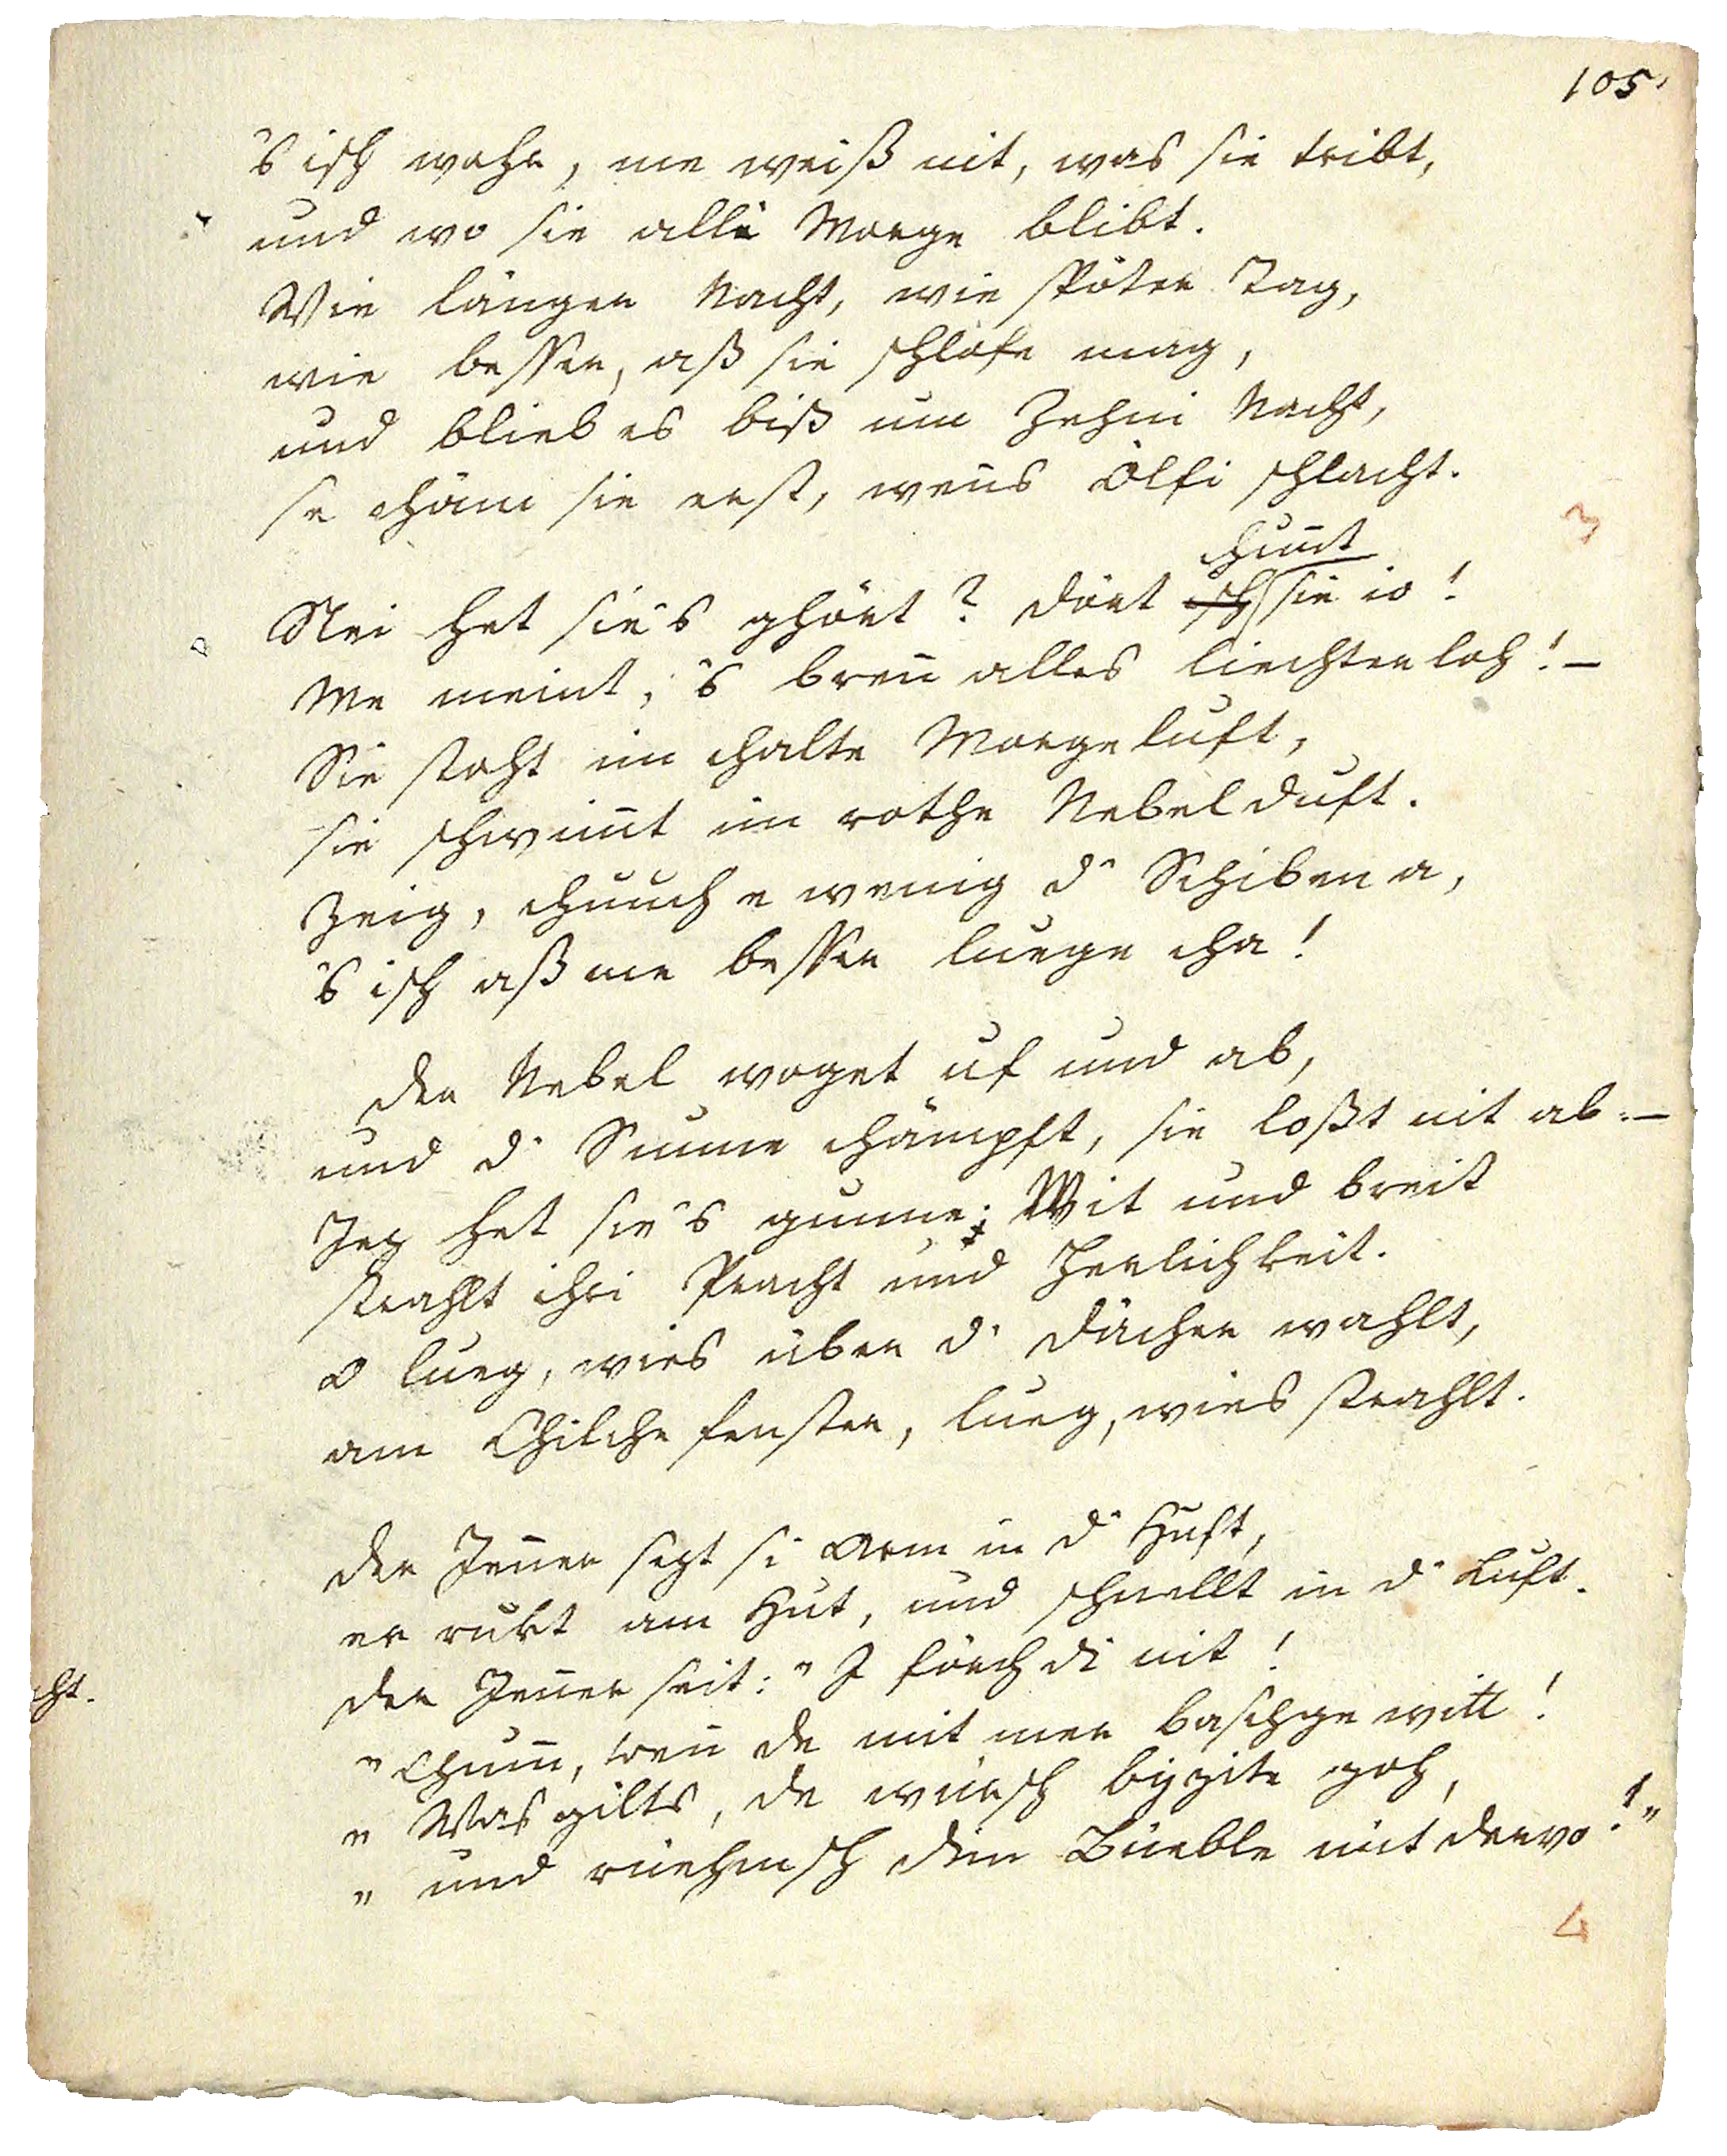 105.
'S isch wohr, me weiß nit, was sie tribt,
und wo sie alli Morge blibt.
Wie länger Nacht, wie spöter Tag,
wie besser, aß sie schlofe mag,
und blieb es biß um Zehni Nacht,
se chäm sie erst, wen̄s Ölfi schlacht.
3
chum̄t
Nei het sie's ghört? Dört isch sie io!
Me meint, 's bren̄ alles liechterloh! —
Sie stoht im chalte Morgeluft,
sie schwim̄t im rothe Nebelduft.
Zeig, chuuch e wenig d' Schiben a,
's isch aß me besser luege cha!
Der Nebel woget uf und ab,
und d' Sunne chämpft, sie loßt nit ab. —
Jez het sie's gunne: Wit und breit
strahlt ihri Pracht und Herlichkeit.
O lueg, wies über d' Dächer wahlt,
am Chilchefenster, lueg, wies strahlt.
Der Jen̄er sezt si Arm in d' Huft,
er rukt am Hut, und schnellt in d' Luft.
Der Jen̄er seit: "I förch di nit!
" Chum̄, wen̄ de mit mer baschge witt!
" Was gilts, de würsch byzite goh,
" und rüehmsch dim Büeble nüt dervo!"
4
cht.